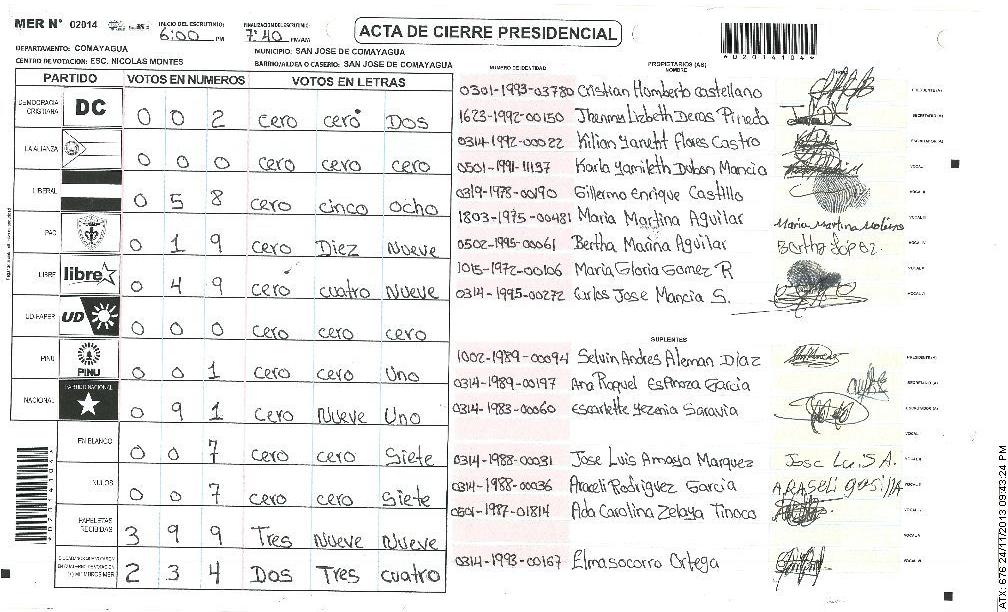 MER N° 02014 INICIO DEL ESCRUTINIO: 6:00 PM FINALIZACION DEL ESCRUTINIO: 7:40 PM/AM
ACTA DE CIERRE PRESIDENCIAL
DEPARTAMENTO: COMAYAGUA
MUNICIPIO: SAN JOSE DE COMAYAGUA
CENTRO DE VOTACION: ESC. NICOLAS MONTES
BARRIO/ALDEA O CASERIO: SAN JOSE DE COMAYAGUA
PARTIDO VOTOS EN NUMEROS VOTOS EN LETRAS
DEMOCRACIA CRISTIANA DC 0 0 2 cero cero Dos
LA ALIANZA 0 0 0 cero cero cero
LIBERAL 0 5 8 cero cinco ocho
PAC 0 1 9 cero Diez Nueve
LIBRE libre 0 4 9 cero cuatro Nueve
UD-FAPER UD 0 0 0 cero cero cero
PINU PINU 0 0 1 cero cero Uno
NACIONAL PARTIDO NACIONAL 0 9 1 cero Nueve Uno
EN BLANCO 0 0 7 cero cero Siete
NULOS 0 0 7 cero cero Siete
PAPELETAS RECIBIDAS 3 9 9 Tres Nueve Nueve
2 3 4 Dos Tres cuatro
NUMERO DE IDENTIDAD PROPIETARIOS (AS) NOMBRE
0301-1993-03780 Cristian Homberto Castellano PRESIDENTE(A)
1623-1992-00150 Jhenny Lizbeth Deras Pineda SECRETARIO(A)
0314-1992-00022 Kilian Yaneht Flores Castro ESCRUTADOR (A)
0501-1991-11137 Karla Yamileth Dubon Mancia VOCAL I
0319-1978-00190 Gillermo Enrique Castillo VOCAL II
1803-1975-00481 Maria Martina Aguilar Maria Martina Molina VOCAL III
0502-1995-00061 Bertha Marina Aguilar Bertha López. VOCAL IV
1015-1972-00106 Maria Gloria Gomez R VOCAL V
0314-1995-00272 Carlos Jose Mancia S. VOCAL VI
SUPLENTES
1002-1989-00094 Selvin Andres Aleman Diaz PRESIDENTE(A)
0314-1989-00197 Ana Raquel Esfinoza Garcia SECRETARIO (A)
0314-1983-00060 Escarlette Yezenia Saravia ESCRUTADOR (A)
VOCAL I
0314-1988-00031 Jose Luis Amaya Marquez Jose Luis A. VOCAL II
0314-1988-00036 Araceli Rodriguez Garcia VOCAL III
0501-1987-01814 Ada Carolina Zelaya Tinoco VOCAL IV
VOCAL V
0314-1993-00167 Elmasocorro Ortega VOCAL VI
ATX 676 24/11/2013 09:43:24 PM